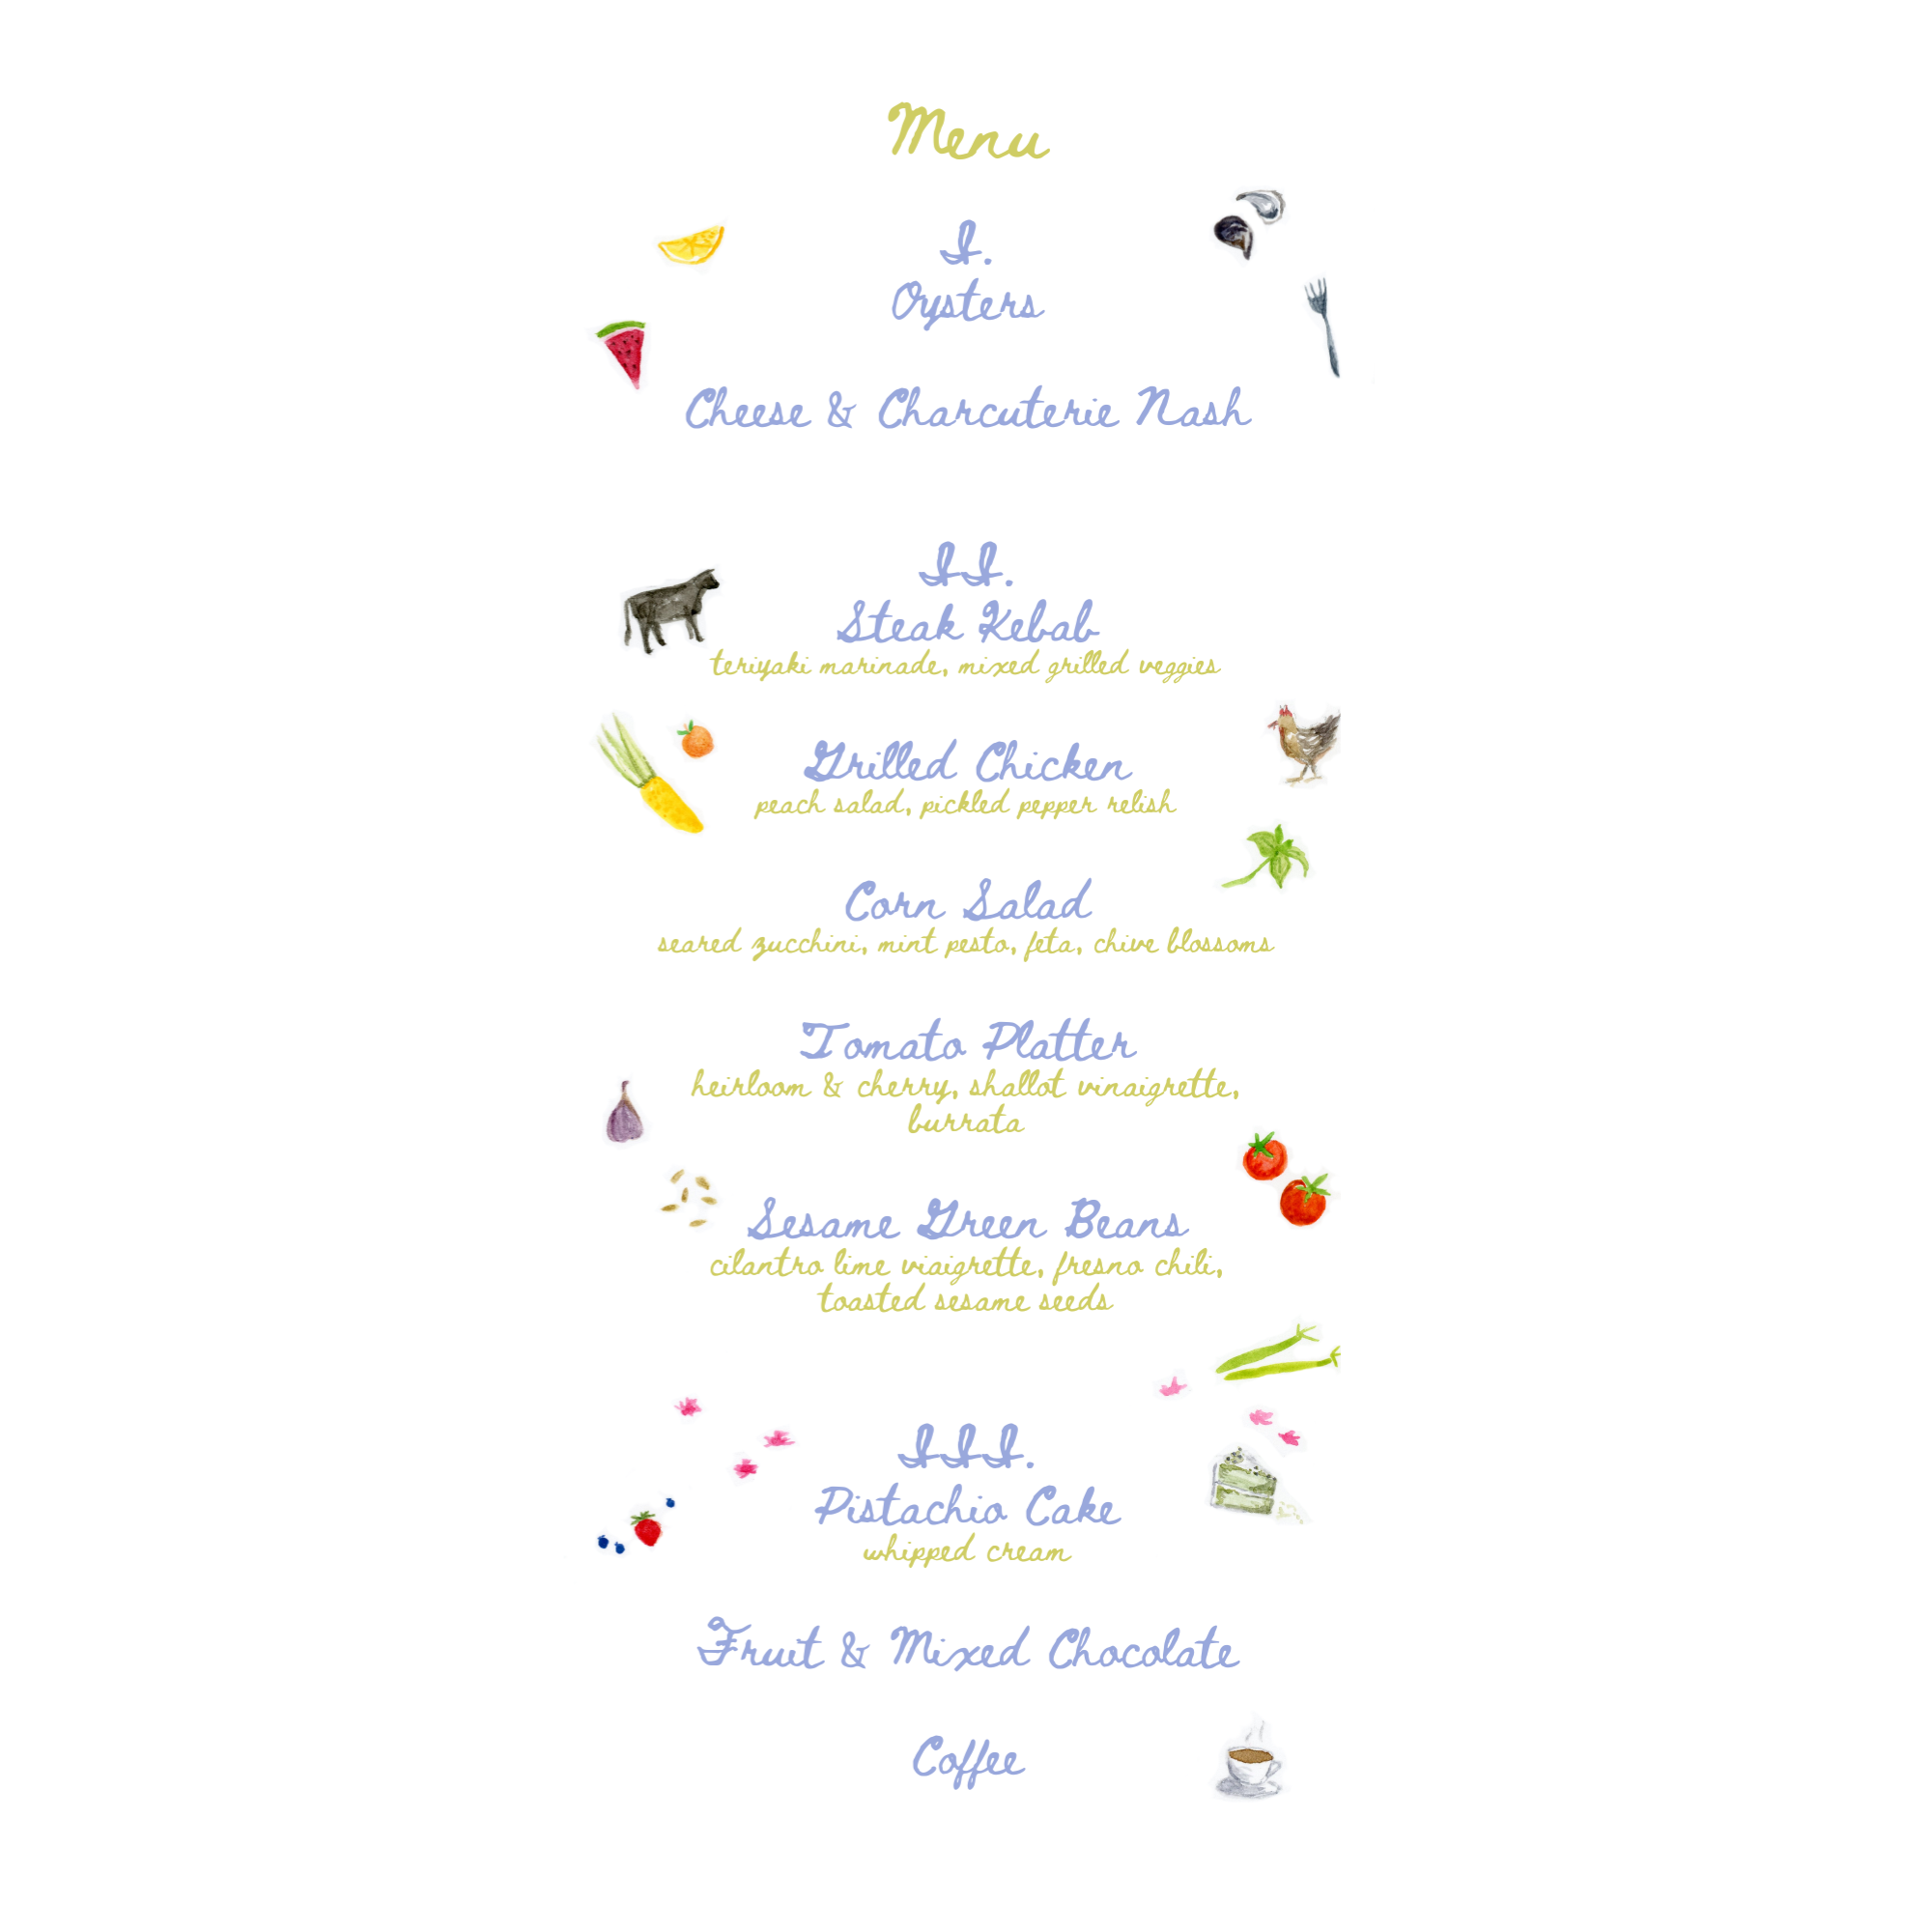 Menu
I.
Oysters
Cheese & Charcuterie Nash
II.
Steak Kebab
teriyaki marinade, mixed grilled veggies
Grilled Chicken
peach salad, pickled pepper relish
Corn Salad
seared zucchini, mint pesto, feta, chive blossoms
Tomato Platter
heirloom & cherry, shallot vinaigrette,
burrata
Sesame Green Beans
cilantro lime viaigrette, fresno chili,
toasted sesame seeds
III.
Pistachio Cake
whipped cream
Fruit & Mixed Chocolate
Coffee